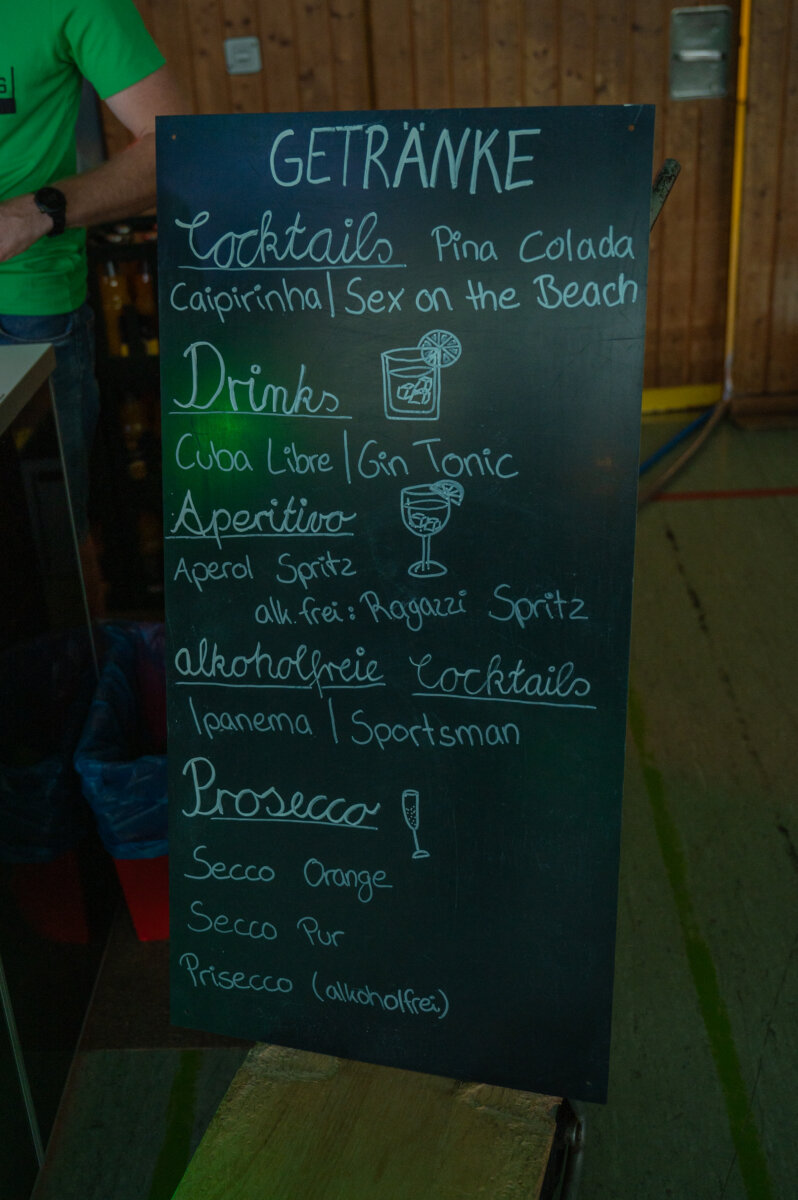 GETRÄNKE
Cocktails Pina Colada
Caipirinha | Sex on the Beach
Drinks
Cuba Libre | Gin Tonic
Aperitivo
Aperol Spritz
alk.frei: Ragazzi Spritz
alkoholfreie Cocktails
Ipanema | Sportsman
Prosecco
Secco Orange
Secco Pur
Prisecco (alkoholfrei)